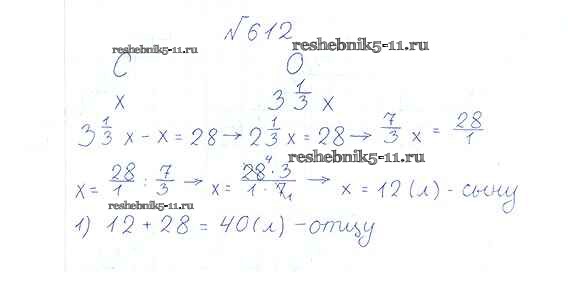 № 612
reshebnik5-11.ru reshebnik5-11.ru
С О
x 3 1/3 x
3 1/3 x - x = 28 → 2 1/3 x = 28 → 7/3 x = 28/1
reshebnik5-11.ru
x = 28/1 : 7/3 → x = 28⁴ · 3 / 1 · 7₁ → x = 12 (л) - сыну
reshebnik5-11.ru
1) 12 + 28 = 40 (л) - отцу